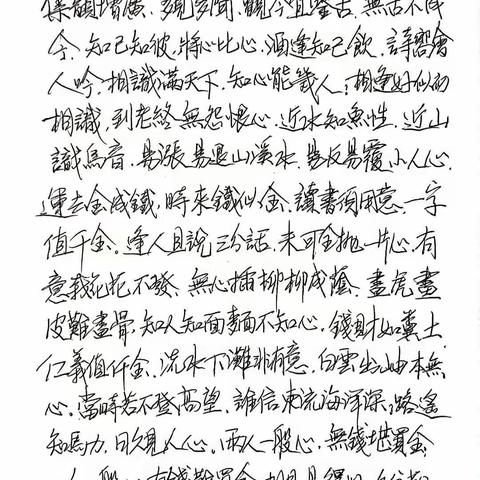 集韻增廣、多見多聞、觀今宜鑒古、無古不成
今、知己知彼、將心比心、酒逢知己飲、詩向會
人吟、相識滿天下、知心能幾人、相逢好似初
相識、到老終無怨恨心、近水知魚性、近山
識鳥音、易漲易退山溪水、易反易覆小人心、
運去金成鐵、時來鐵似金、讀書須用意、一字
值千金、逢人且說三分話、未可全拋一片心、有
意栽花花不發、無心插柳柳成蔭、畫虎畫
皮難畫骨、知人知面不知心、錢財如糞土、
仁義值仟金、流水下灘非有意、白雲出岫本無
心、當時若不登高望、誰信東流海洋深、路遙
知馬力、日久見人心、兩人一般心、無錢堪買金、